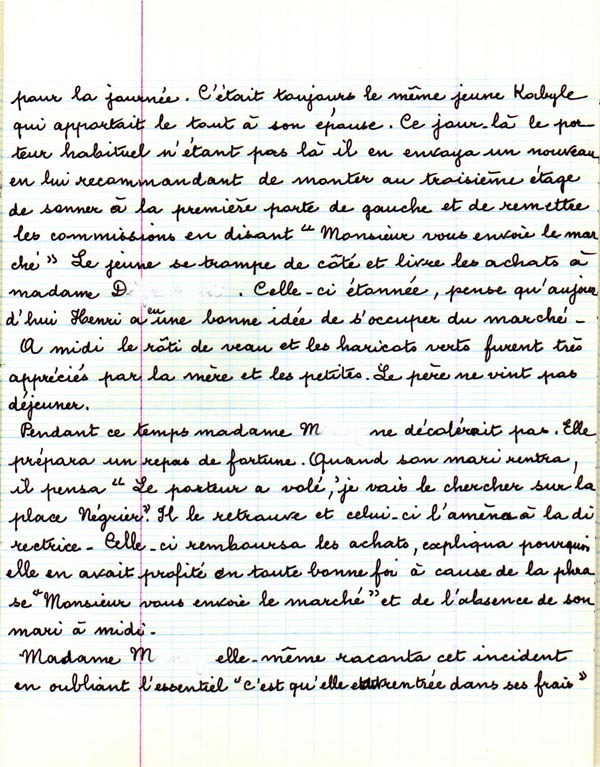 pour la journée. C'était toujours le même jeune Kabyle
qui apportait le tout à son épouse. Ce jour-là le por
teur habituel n'étant pas là il en envoya un nouveau
en lui recommandant de monter au troisième étage
de sonner à la première porte de gauche et de remettre
les commissions en disant "Monsieur vous envoie le mar
ché" Le jeune se trompe de côté et livre les achats à
madame D . Celle-ci étonnée, pense qu'aujour
d'hui Henri a eu une bonne idée de s'occuper du marché -
A midi le rôti de veau et les haricots verts furent très
appréciés par la mère et les petites. Le père ne vint pas
déjeuner.
Pendant ce temps madame M ne décolérait pas. Elle
prépara un repas de fortune. Quand son mari rentra,
il pensa "Le porteur a volé, je vais le chercher sur la
place Négrier". Il le retrouve et celui-ci l'amène à la di
rectrice - Celle-ci remboursa les achats, expliqua pourquoi
elle en avait profité en toute bonne foi à cause de la phra
se "Monsieur vous envoie le marché" et de l'absence de son
mari à midi -
Madame M elle-même raconta cet incident
en oubliant l'essentiel "c'est qu'elle rentrée dans ses frais"